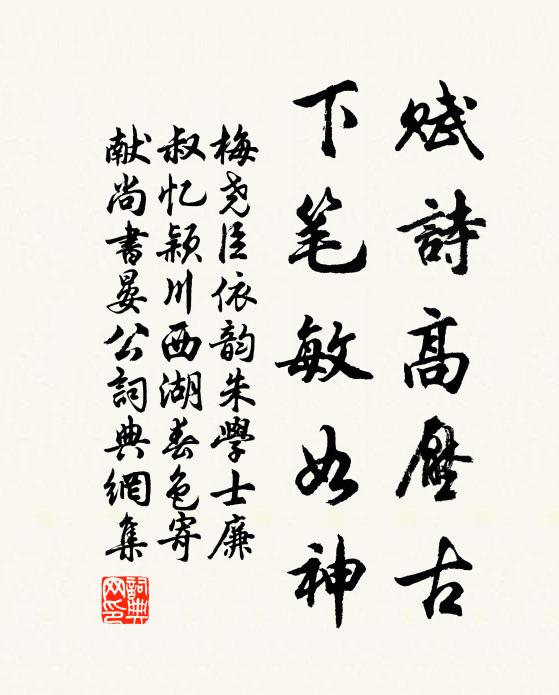 赋詩高壓古
下笔敏如神
梅尧臣依韵朱學士廉
叔忆颍川西湖春色寄
献尚書晏公詞典網集
詞典
网印